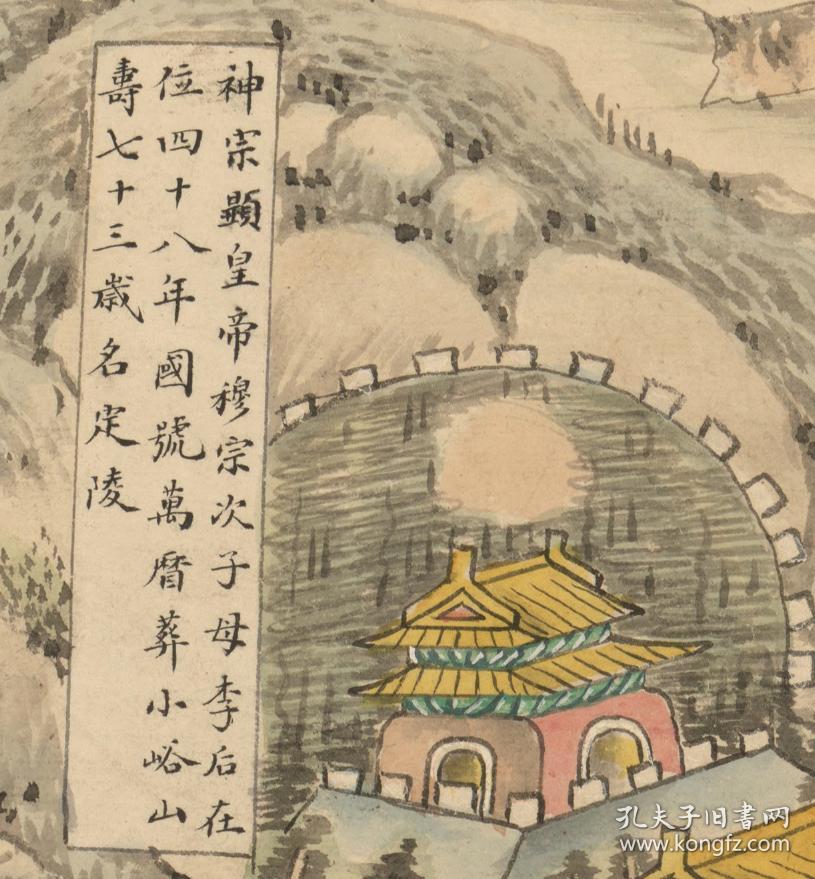 神宗顯皇帝穆宗次子母李后在
位四十八年國號萬曆葬小峪山
壽七十三歲名定陵
孔夫子旧书网
www.kongfz.com